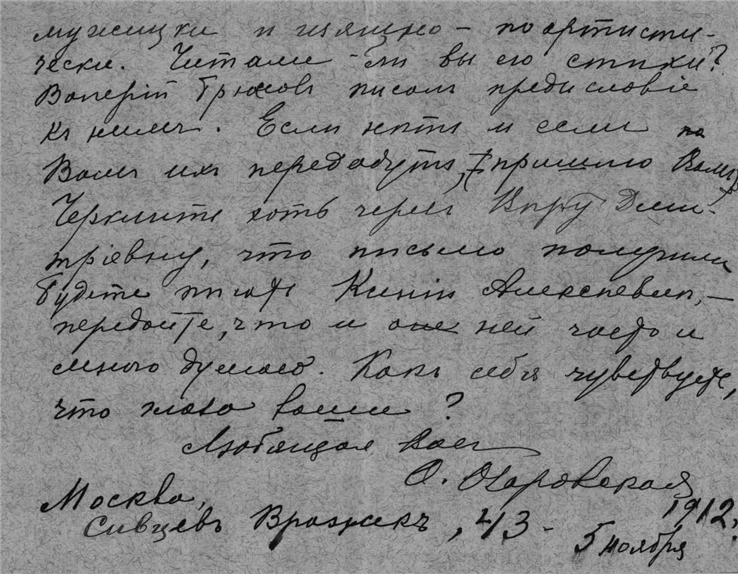 мужицки и изящно – по артисти-
чески. Читали-ли вы его стихи?
Валерій Брюсовъ писалъ предисловіе
къ нимъ. Если нѣтъ и если
Вамъ ихъ передадутъ, пришлю Вамъ
Черкните хоть через Вѣру Дми-
тріевну, что письмо получили
будете писать Алексѣевнѣ, –
передайте, что и о ней часто и
много думаю. Какъ себя чувствуете,
что глаза ваши?
Любящая Васъ
О. Озаровская
Москва, 1912.
Сивцевъ Вражекъ, 43 – 5 ноября